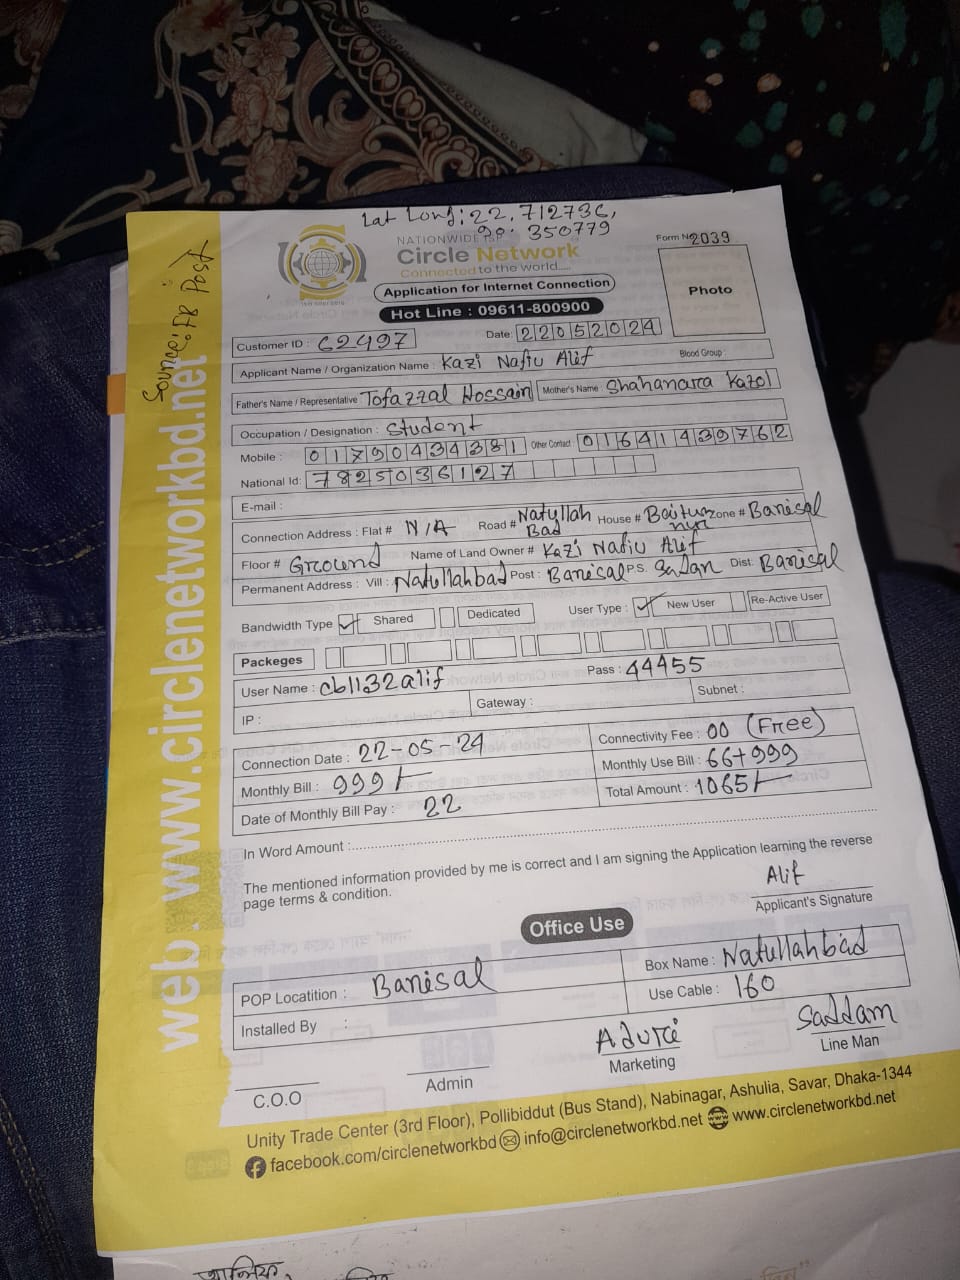 Lat Long: 22.712736,
90.350779
Source: FB Post
web www.circlenetworkbd.net
NATIONWIDE ISP
Circle Network
Connected to the world....
Application for Internet Connection
Hot Line : 09611-800900
Form No 2039
Photo
Customer ID : C2497
Date: 22052024
Applicant Name / Organization Name : Kazi Nafiu Alif Blood Group :
Father's Name / Representative Tofazzal Hossain Mother's Name : Shahanara Kazol
Occupation / Designation : Student
Mobile : 01790434381 Other Contact : 01641439762
National Id: 7825036127
E-mail :
Connection Address : Flat # N/A Road # Natullah Bad House # Baitun nur Zone # Barisal
Floor # Ground Name of Land Owner # Kazi Nafiu Alif
Permanent Address : Vill : Natullahbad Post : Barisal P.S. Sadar Dist: Barisal
Bandwidth Type ✓ Shared Dedicated User Type : ✓ New User Re-Active User
Packeges
User Name : cb1132alif Pass : 44455
IP : Gateway : Subnet :
Connection Date : 22-05-24 Connectivity Fee : 00 (Free)
Monthly Bill : 999/- Monthly Use Bill : 66+999
Date of Monthly Bill Pay : 22 Total Amount : 1065/-
In Word Amount :
The mentioned information provided by me is correct and I am signing the Application learning the reverse
page terms & condition.
Alif
Applicant's Signature
Office Use
POP Locatition : Barisal Box Name : Natullahbad
Installed By : Use Cable : 160
Saddam
C.O.O Admin Marketing Line Man
Unity Trade Center (3rd Floor), Pollibiddut (Bus Stand), Nabinagar, Ashulia, Savar, Dhaka-1344
facebook.com/circlenetworkbd info@circlenetworkbd.net www.circlenetworkbd.net